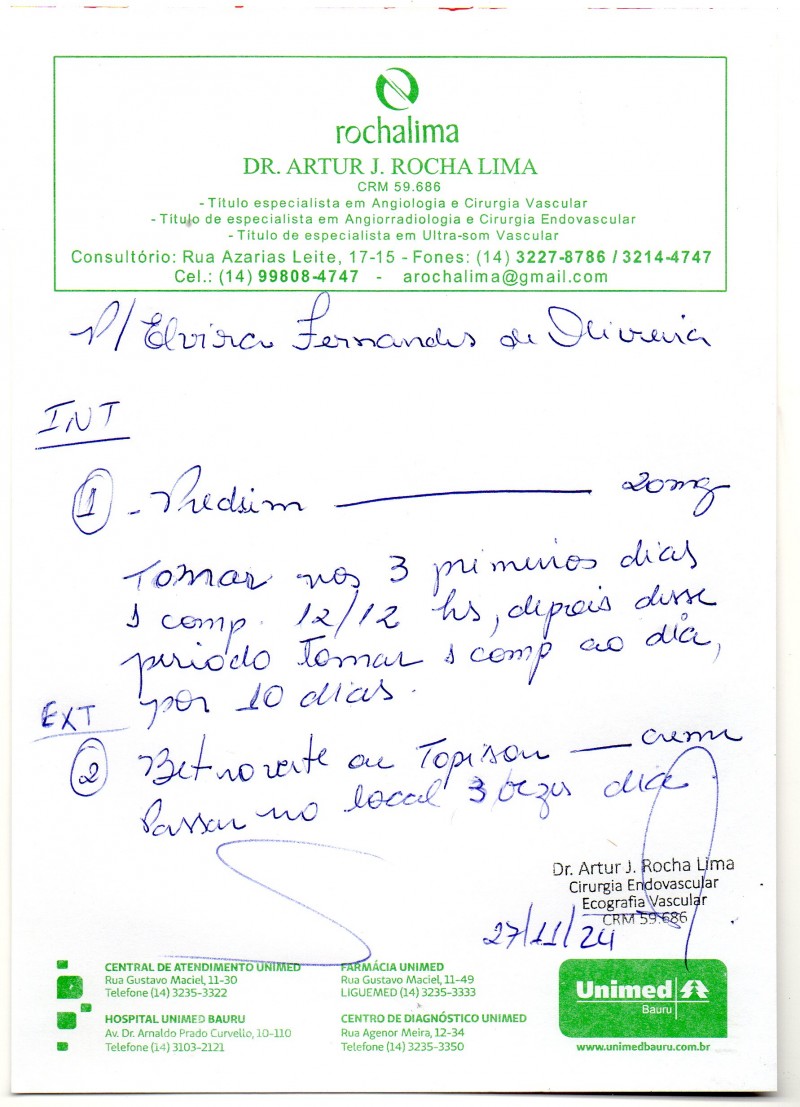 rochalima
DR. ARTUR J. ROCHA LIMA
CRM 59.686
- Título especialista em Angiologia e Cirurgia Vascular
- Título de especialista em Angiorradiologia e Cirurgia Endovascular
- Título de especialista em Ultra-som Vascular
Consultório: Rua Azarias Leite, 17-15 - Fones: (14) 3227-8786 / 3214-4747
Cel.: (14) 99808-4747 - arochalima@gmail.com
P/ Elvira Fernandes de Oliveira
INT
1 - Predsim 20mg
Tomar nos 3 primeiros dias
1 comp. 12/12 hs, depois desse
período tomar 1 comp ao dia,
por 10 dias.
EXT
2 Betnovate ou Topison creme
Passar no local 3 vezes dia
Dr. Artur J. Rocha Lima
Cirurgia Endovascular
Ecografia Vascular
CRM 59.686
27/11/24
CENTRAL DE ATENDIMENTO UNIMED
Rua Gustavo Maciel, 11-30
Telefone (14) 3235-3322
HOSPITAL UNIMED BAURU
Av. Dr. Arnaldo Prado Curvello, 10-110
Telefone (14) 3103-2121
FARMÁCIA UNIMED
Rua Gustavo Maciel, 11-49
LIGUEMED (14) 3235-3333
CENTRO DE DIAGNÓSTICO UNIMED
Rua Agenor Meira, 12-34
Telefone (14) 3235-3350
Unimed
Bauru
www.unimedbauru.com.br